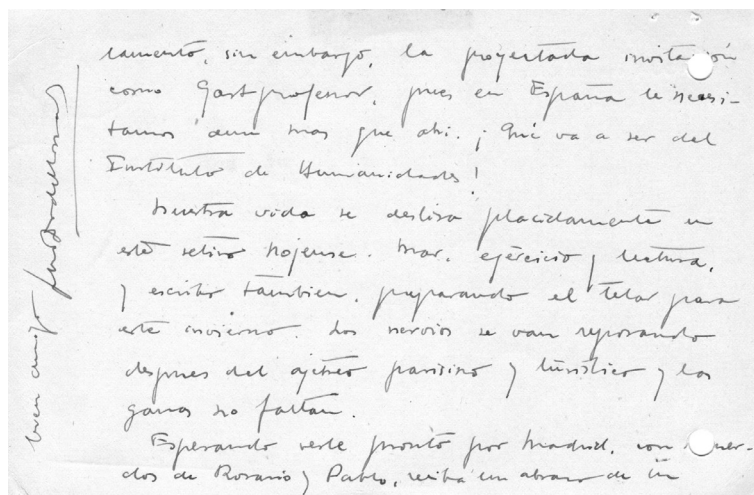 lamento, sin embargo, la proyectada invitación
como Gastprofessor, pues en España le necesi-
tamos aun mas que ahi. ¡Qué va a ser del
Instituto de Humanidades!
Nuestra vida se desliza placidamente en
este retiro nojense. Mar, ejercicio y lectura,
y escribir tambien, preparando el telar para
este invierno. Los nervios se van reposando
despues del ajetreo parisino y turístico y las
ganas no faltan.
Esperando verle pronto por Madrid, con recuer-
dos de Rosario y Pablo, reciba un abrazo de un
buen amigo